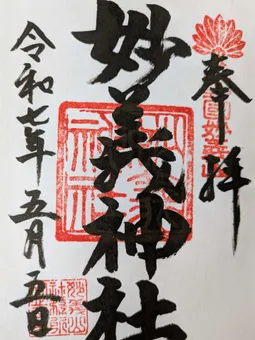 奉拝
妙義神社
令和七年五月五日